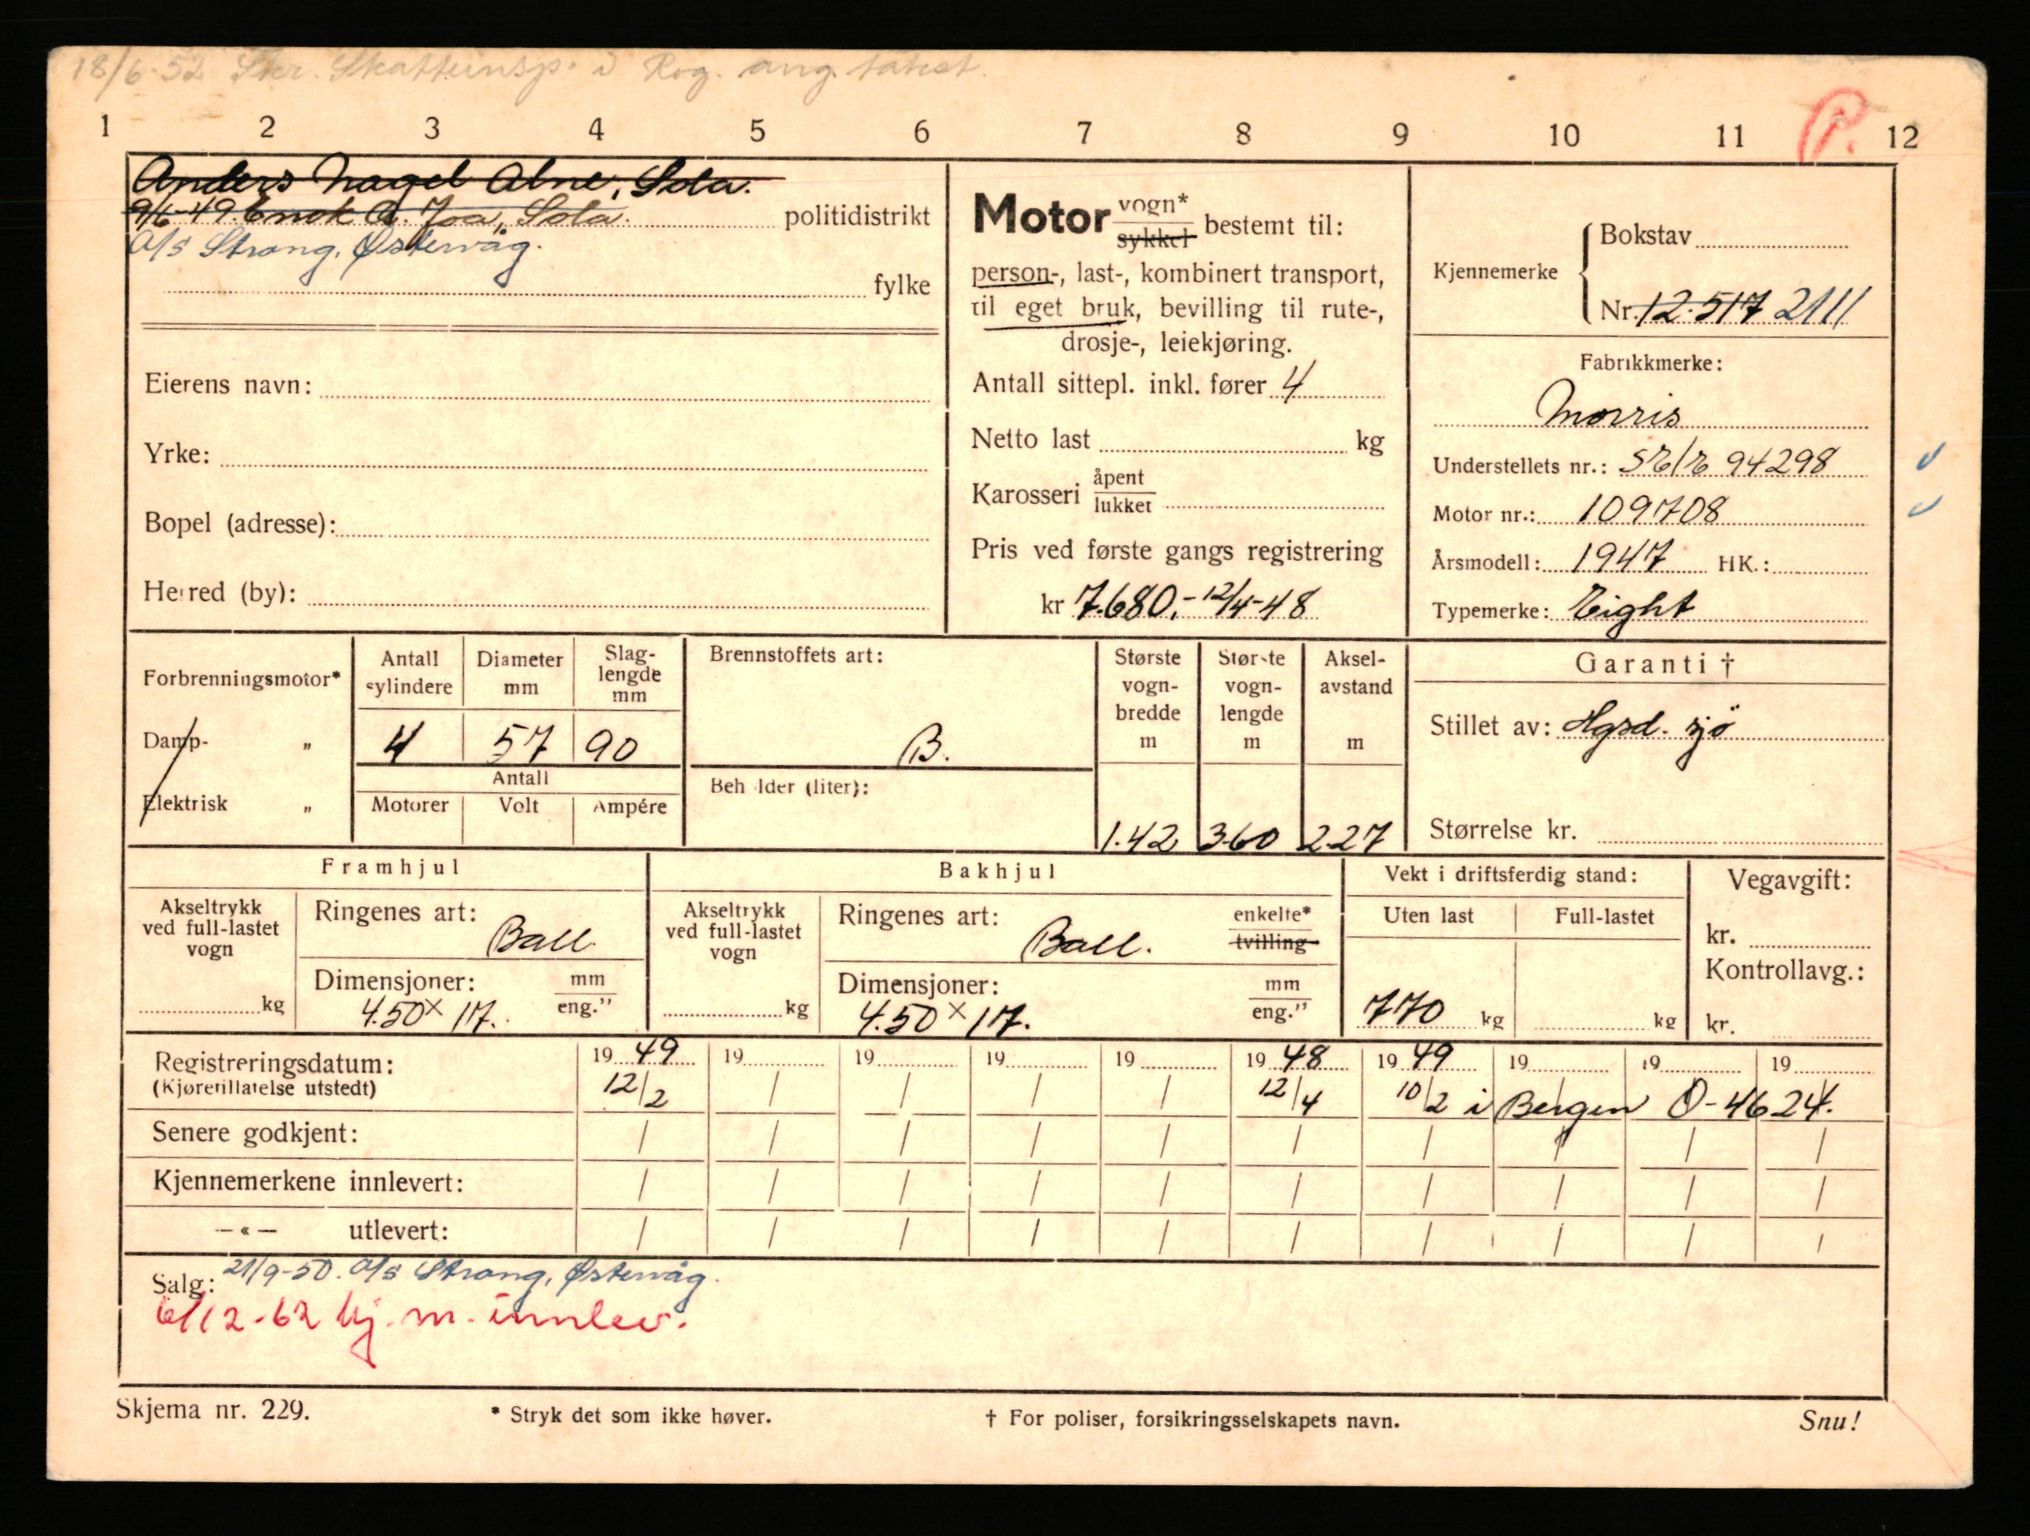 18/6-52 Skr. Skatteinsp. i Rog. ang. takst.
1 2 3 4 5 6 7 8 9 10 11 P. 12
Anders Nagel Alne, Sola.
9/6-49. Enok A. Joa, Sola. politidistrikt
A/s Strong, Østervåg.
fylke
Eierens navn:
Yrke:
Bopel (adresse):
Herred (by):
Motor vogn* sykkel bestemt til:
person-, last-, kombinert transport,
til eget bruk, bevilling til rute-,
drosje-, leiekjøring.
Antall sittepl. inkl. fører 4
Netto last kg
Karosseri åpent lukket
Pris ved første gangs registrering
kr 7.680,- 12/4-48
Kjennemerke
Bokstav
Nr. 12.517 2111
Fabrikkmerke:
Morris
Understellets nr.: SE/E 94298
Motor nr.: 109708
Årsmodell: 1947 HK.:
Typemerke: Eight
Forbrenningsmotor*
Damp- „
Elektrisk „
Antall sylindere
Diameter mm
Slag-lengde mm
4 57 90
Antall
Motorer Volt Ampére
Brennstoffets art:
B.
Beholder (liter):
Største vogn-bredde m
Største vogn-lengde m
Aksel-avstand m
1.42 360 227
Garanti †
Stillet av: Hgsd. sjö
Størrelse kr.
Framhjul
Akseltrykk ved full-lastet vogn
kg
Ringenes art:
Ball.
Dimensjoner: mm eng."
4.50 x 17.
Bakhjul
Akseltrykk ved full-lastet vogn
kg
Ringenes art: enkelte* tvilling
Ball.
Dimensjoner: mm eng."
4.50 x 17.
Vekt i driftsferdig stand:
Uten last Full-lastet
770 kg kg
Vegavgift:
kr.
Kontrollavg.:
kr.
Registreringsdatum: 19 49 19 19 19 19 19 48 19 49 19 19 19
(Kjøretillatelse utstedt) 12/2 / / / / 12/4 10/2 i Bergen O-4624.
Senere godkjent: / / / / / / / / / /
Kjennemerkene innlevert: / / / / / / / / / /
— « — utlevert: / / / / / / / / / /
Salg: 21/9-50. A/s Strong, Østervåg.
6/12-62 kj. m. innlev.
Skjema nr. 229.
* Stryk det som ikke høver.
† For poliser, forsikringsselskapets navn.
Snu!